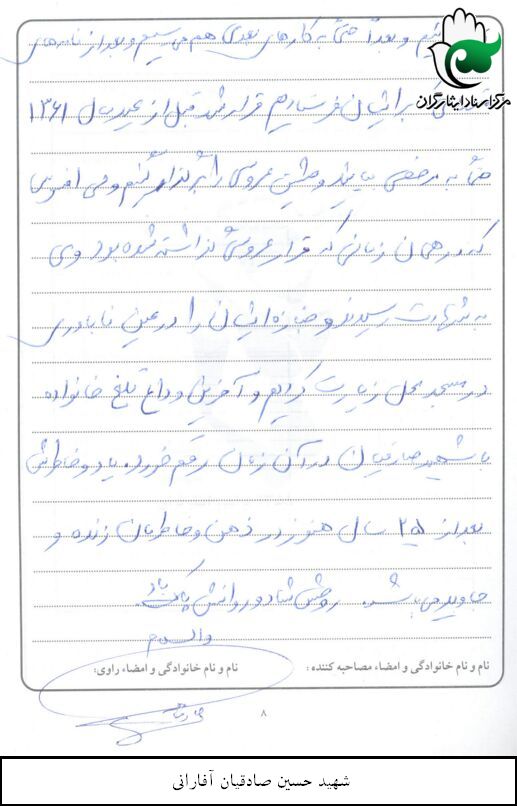 و بعداً حتی به کارهای بعدی هم می رسیم و بعد از نامه‌های
مرکز اسناد ایثارگران
که برای ایشان فرستادیم قرار شد قبل از عید سال ۱۳۶۱
حتماً به مرخصی بیایند و جشن عروسی را برگذار کنیم ولی افسوس
که در همان زمانی که قرار عروسی گذاشته شده بود وی
به شهادت رسیدند و جنازه ایشان را در عین ناباوری
در مسجد محل زیارت کردیم و آخرین وداع تلخ خانواده
با شهید صادقیان در آن زمان رقم خورد. یاد و خاطراتش
بعد از ۲۵ سال هنوز در ذهن و خاطرمان زنده و
جاوید می باشد. روحش شاد و روانش پاک باد.
والسلام
نام و نام خانوادگی و امضاء مصاحبه کننده :
نام و نام خانوادگی و امضاء راوی:
۸
شهید حسین صادقیان آفارانی